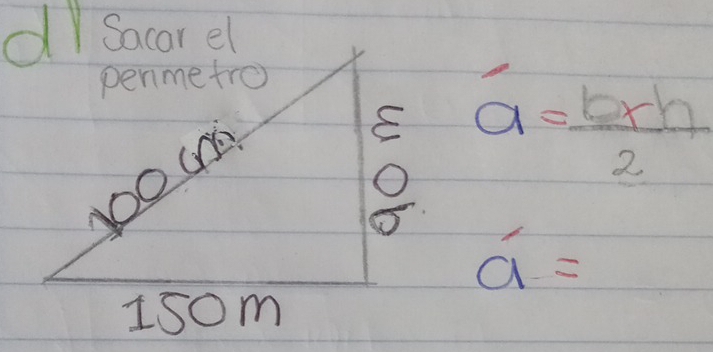 d) Sacar el
perimetro
100 cm
90 m
150 m
á = bxh
2
á =